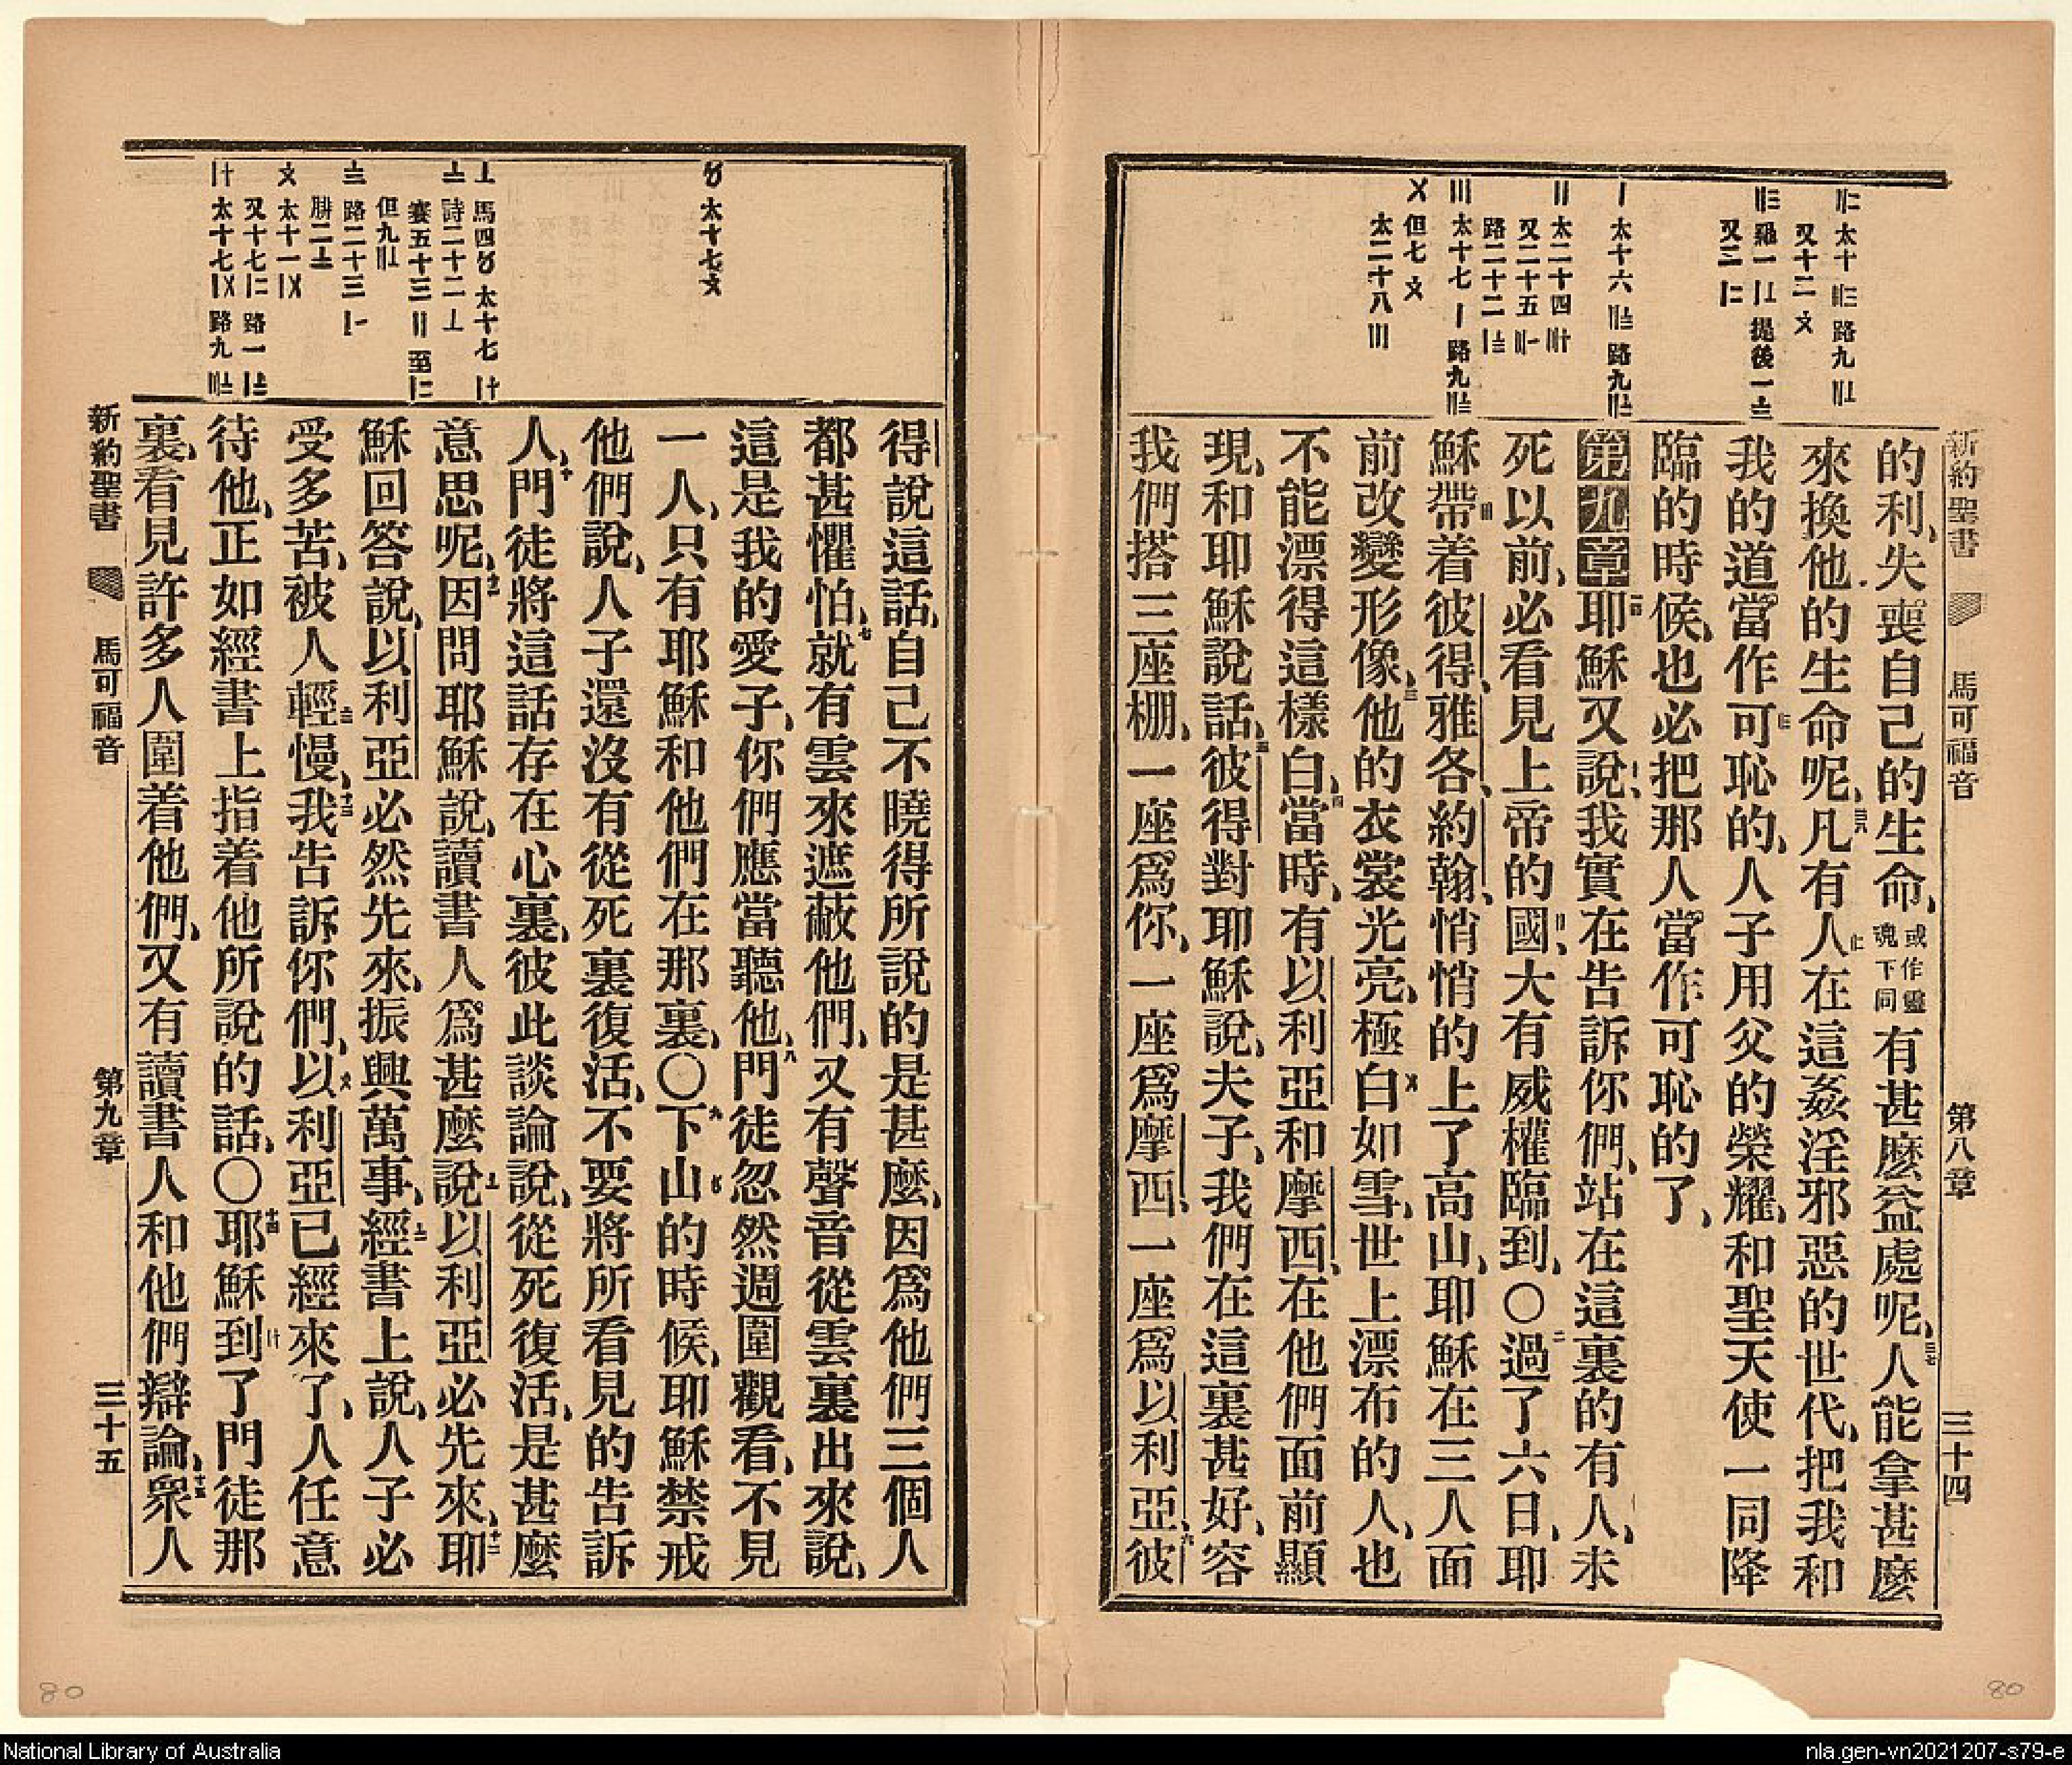 新約聖書 馬可福音 第八章 三十四
〢太十〣路九〢
又十二〤
羅一提後一
又三
太十六路九
太二十四
又二十五
路二十二
〣太十七〡路九
〤但七〤
太二十八〣
的利、失喪自己的生命、或作靈魂下同有甚麽益處呢、三七人能拿甚麽
來換他的生命呢、三八凡有人在這姦淫邪惡的世代、把我和
我的道當作可恥的、人子用父的榮耀、和聖天使一同降
臨的時候、也必把那人當作可恥的了、
第九章一耶穌又說、我實在告訴你們、站在這裏的有人、未
死以前、必看見上帝的國、大有威權臨到、〇二過了六日、耶
穌帶着彼得、雅各、約翰、悄悄的上了高山、耶穌在三人面
前改變形像、三他的衣裳光亮、極白如雪、世上漂布的人、也
不能漂得這樣白、四當時、有以利亞和摩西、在他們面前顯
現、和耶穌說話、五彼得對耶穌說、夫子、我們在這裏甚好、容
我們搭三座棚、一座爲你、一座爲摩西、一座爲以利亞、六彼
太十七〤
馬四太十七
詩二十二
賽五十三〢至
但九
路二十三
腓二
〤太十一
又十七路一
太十七路九
得說這話、自己不曉得所說的是甚麽、因爲他們三個人
都甚懼怕、七就有雲來遮蔽他們、又有聲音從雲裏出來說、
這是我的愛子、你們應當聽他、八門徒忽然週圍觀看、不見
一人、只有耶穌和他們在那裏、〇九下山的時候、耶穌禁戒
他們說、人子還沒有從死裏復活、不要將所看見的告訴
人、十門徒將這話存在心裏、彼此談論說、從死復活、是甚麽
意思呢、十一因問耶穌說、讀書人爲甚麽說以利亞必先來、十二耶
穌回答說、以利亞必然先來、振興萬事、經書上說、人子必
受多苦、被人輕慢、十三我告訴你們、以利亞已經來了、人任意
待他、正如經書上指着他所說的話、〇十四耶穌到了門徒那
裏、看見許多人圍着他們、又有讀書人和他們辯論、十五衆人
新約聖書 馬可福音 第九章 三十五
80
80
National Library of Australia
nla.gen-vn2021207-s79-e